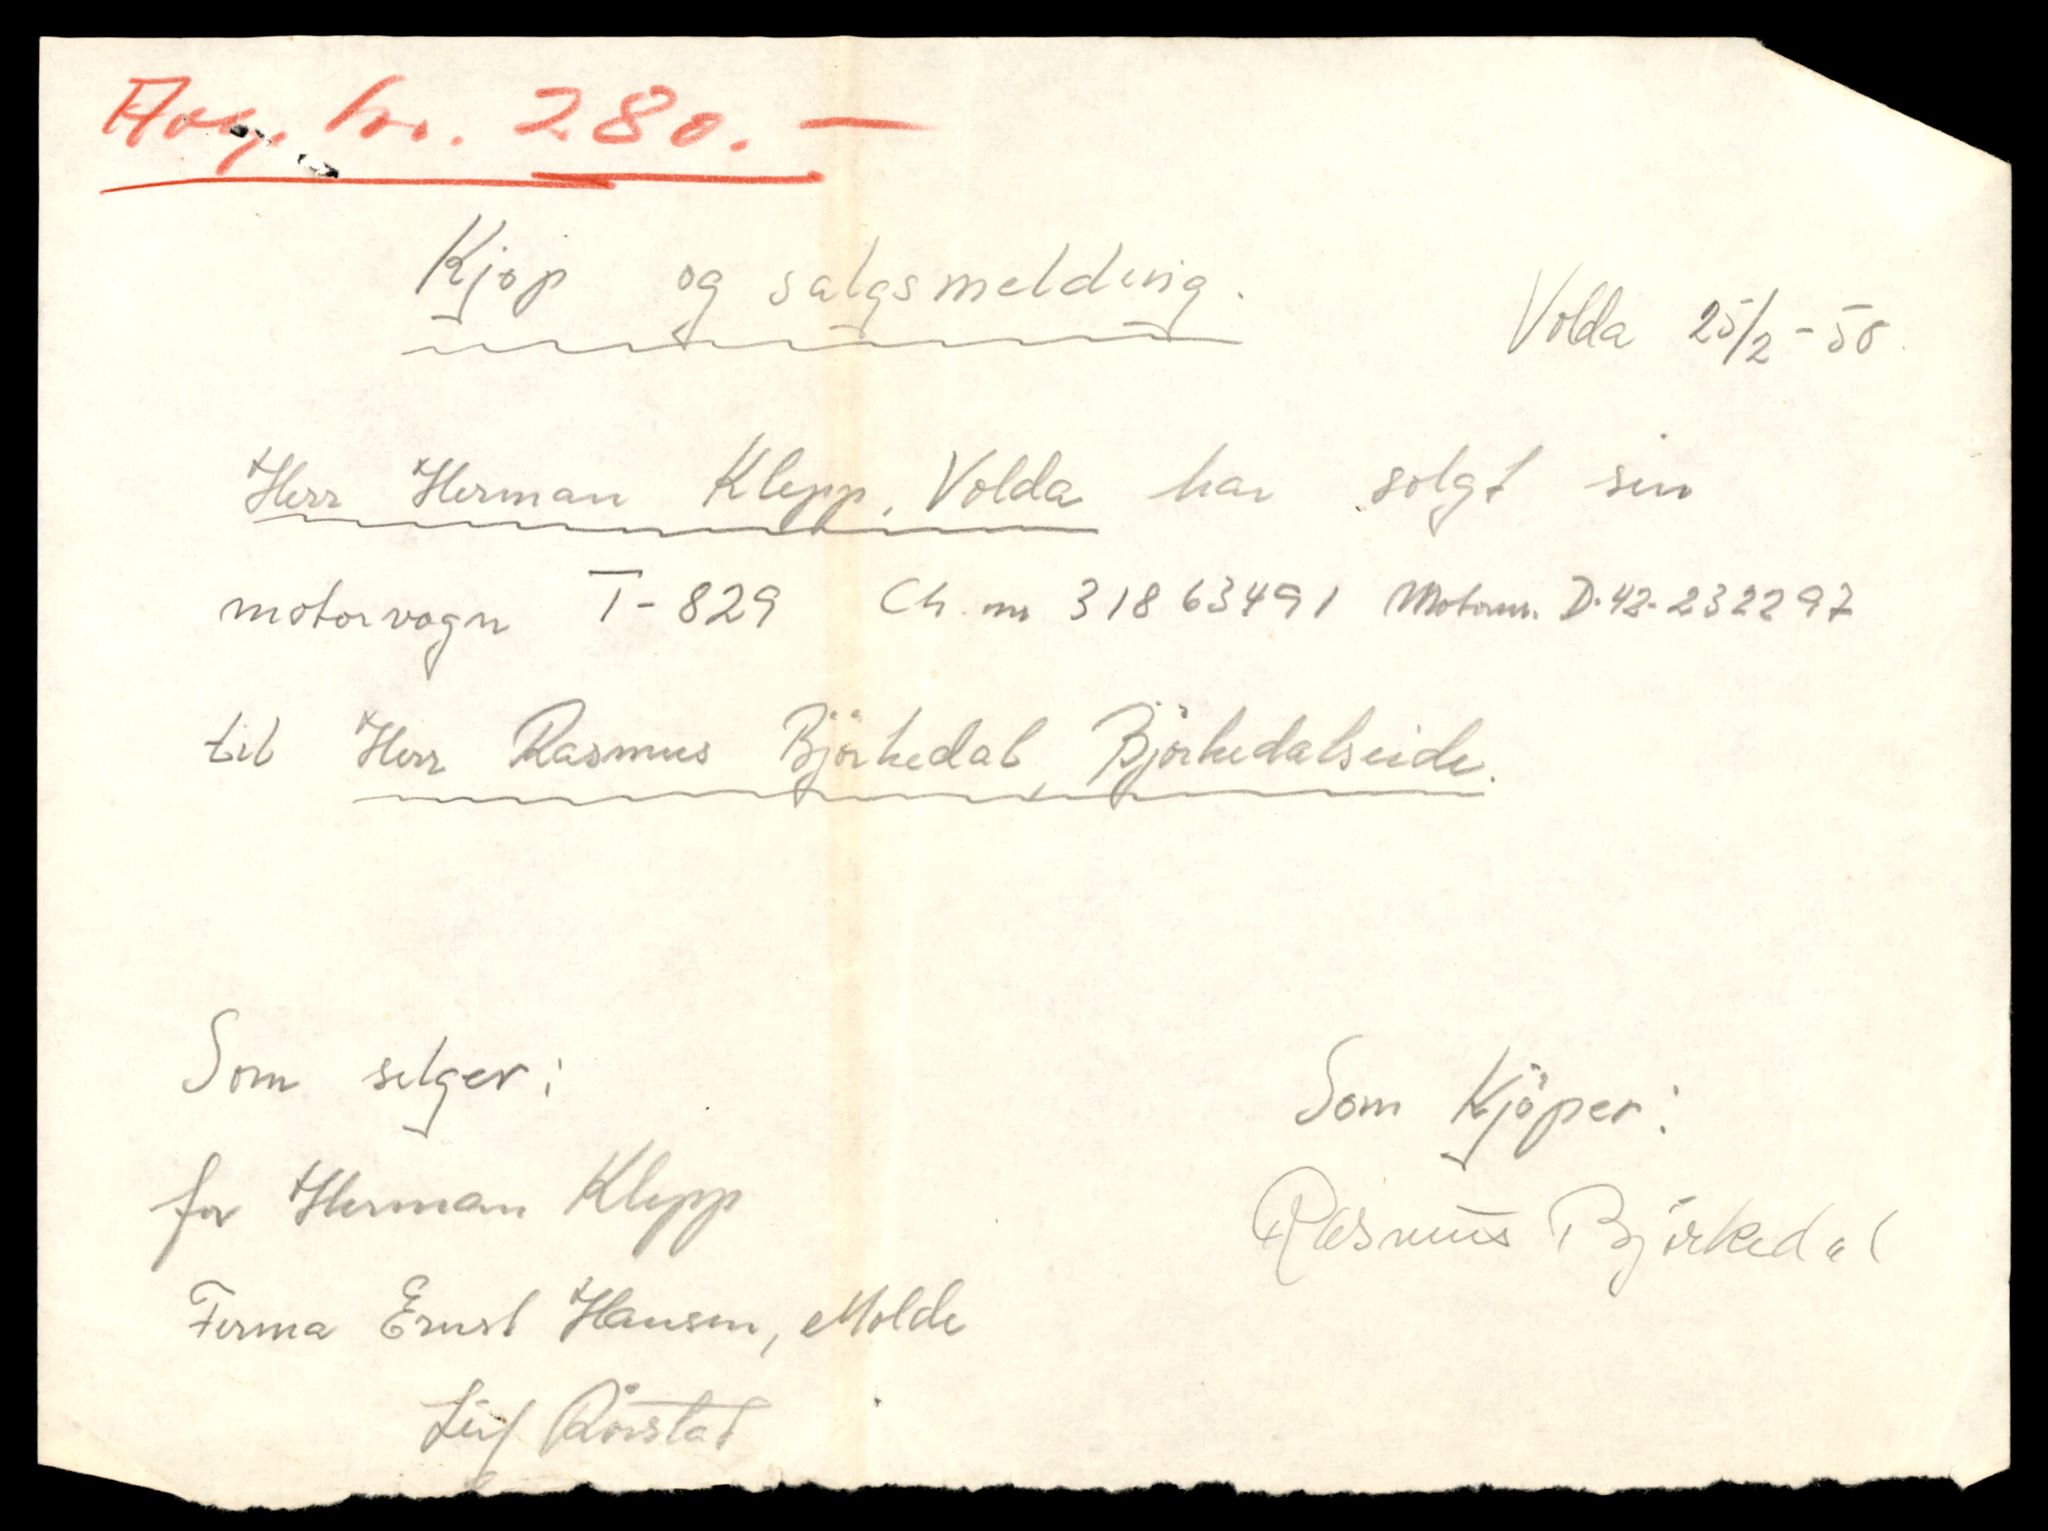 Avg. kr. 280.—
Kjøp og salgsmelding.
Volda 25/2-50.
Herr Herman Klepp, Volda har solgt sin
motorvogn T-829 Ch. nr 31863491 Motornr. D-42-232297
til Herr Rasmus Björkedal, Björkedalseide.
Som selger:
for Herman Klepp
Firma Ernst Hansen, Molde
Leif Rörstad
Som Kjöper:
Rasmus Björkedal